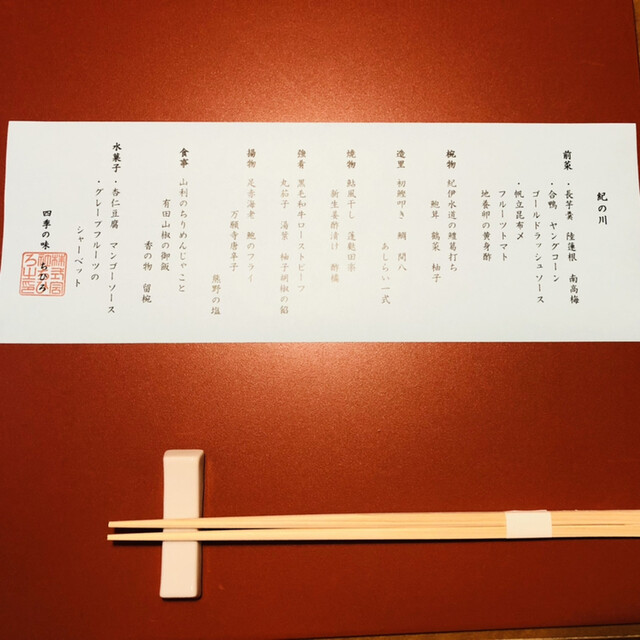 紀の川
前菜 ・長芋羹 陸蓮根 南高梅
・合鴨 ヤングコーン
ゴールドラッシュソース
・帆立昆布〆
フルーツトマト
地養卵の黄身酢
椀物 紀伊水道の鱧葛打ち
鮑茸 鶴菜 柚子
造里 初鰹叩き 鯛 間八
あしらい一式
焼物 鮎風干し 蓮麩田楽
新生姜酢漬け 酢橘
強肴 黒毛和牛ローストビーフ
丸茄子 湯葉 柚子胡椒の餡
揚物 足赤海老 鱧のフライ
万願寺唐辛子
熊野の塩
食事 山利のちりめんじゃこと
有田山椒の御飯
香の物 留椀
水菓子 ・杏仁豆腐 マンゴーソース
・グレープフルーツの
シャーベット
四季の味 ちひろ